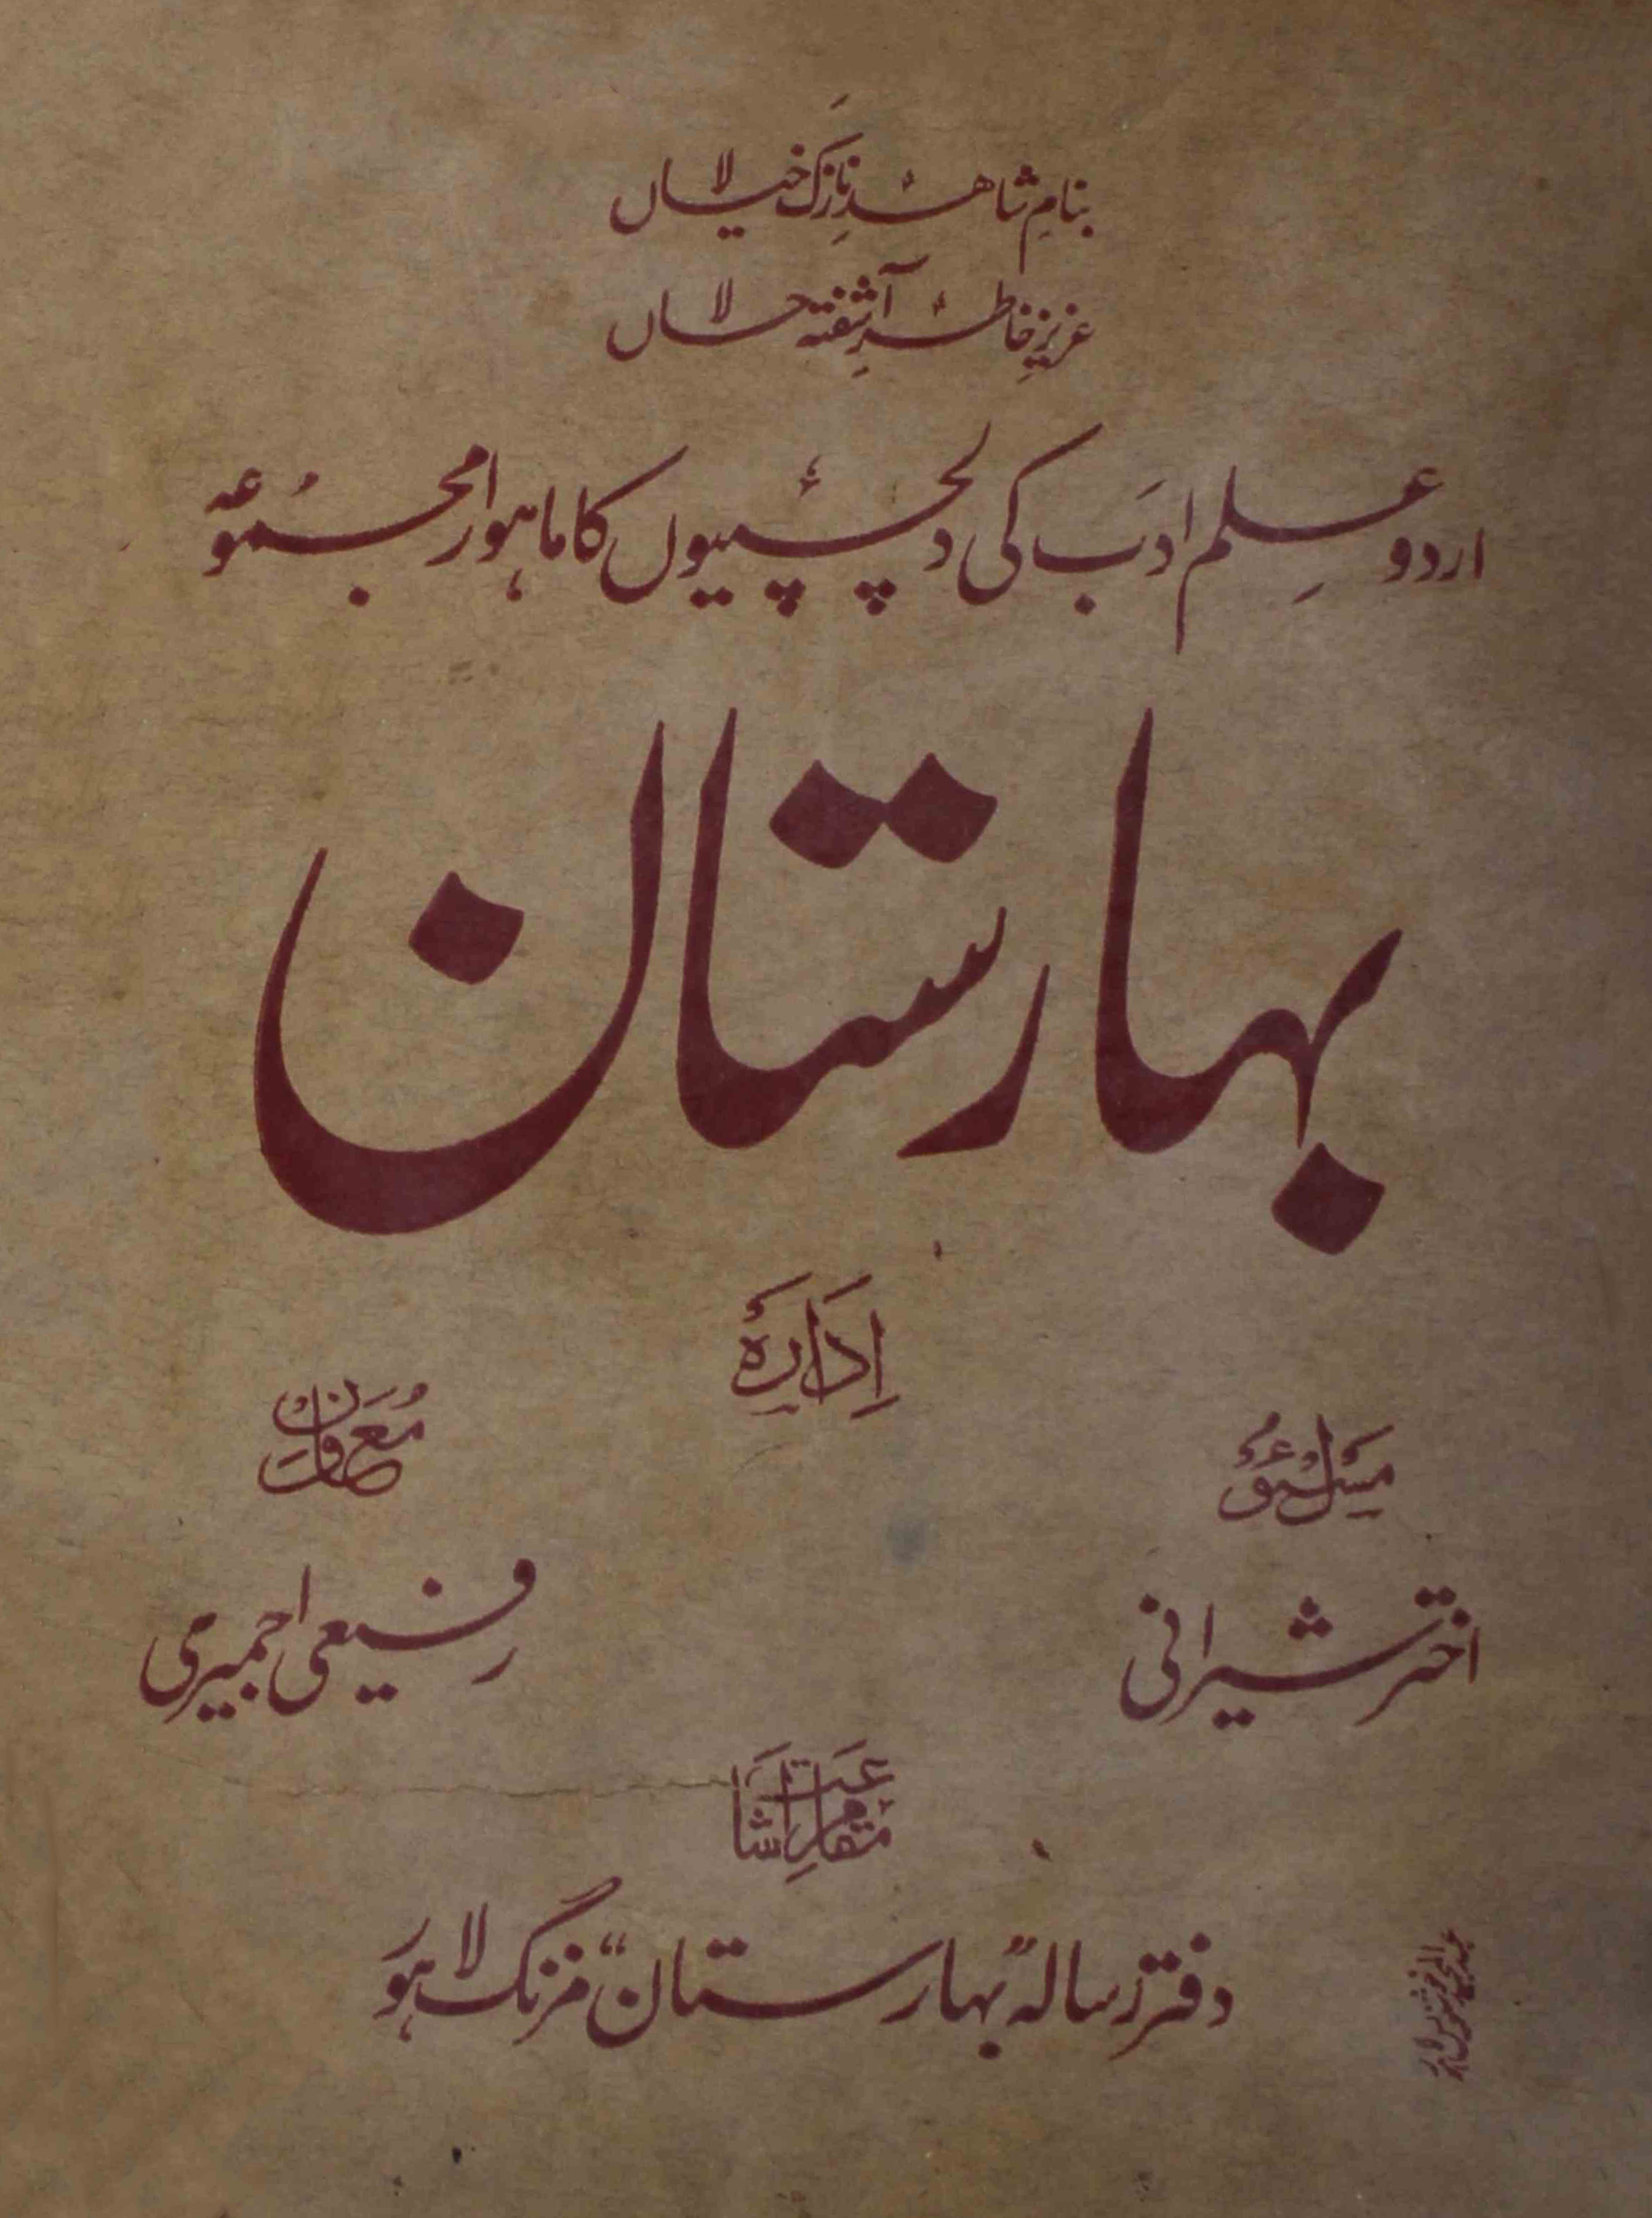 بنامِ شاہدِ نازک خیالاں
عزیزِ خاطرِ آشفتہ حالاں
اردو علم ادب کی دلچسپیوں کا ماہوار مجموعہ
بہارستان
اِدَارَہ
مسئول
مُعَاوِن
اختر شیرانی
رفیعی اجمیری
مقامِ اشاعت
دفتر رسالہ "بہارستان" مزنگ لاہور